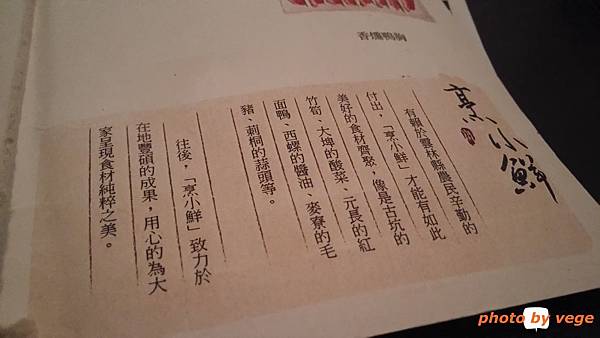 香燻鴨胸
烹小鮮
有賴於雲林縣農民辛勤的
付出,「烹小鮮」才能有如此
美好的食材齊聚,像是古坑的
竹筍、大埤的酸菜、元長的紅
面鴨、西螺的醬油、麥寮的毛
豬、莿桐的蒜頭等。
往後,「烹小鮮」致力於
在地豐碩的成果,用心的為大
家呈現食材純粹之美。
photo by vege